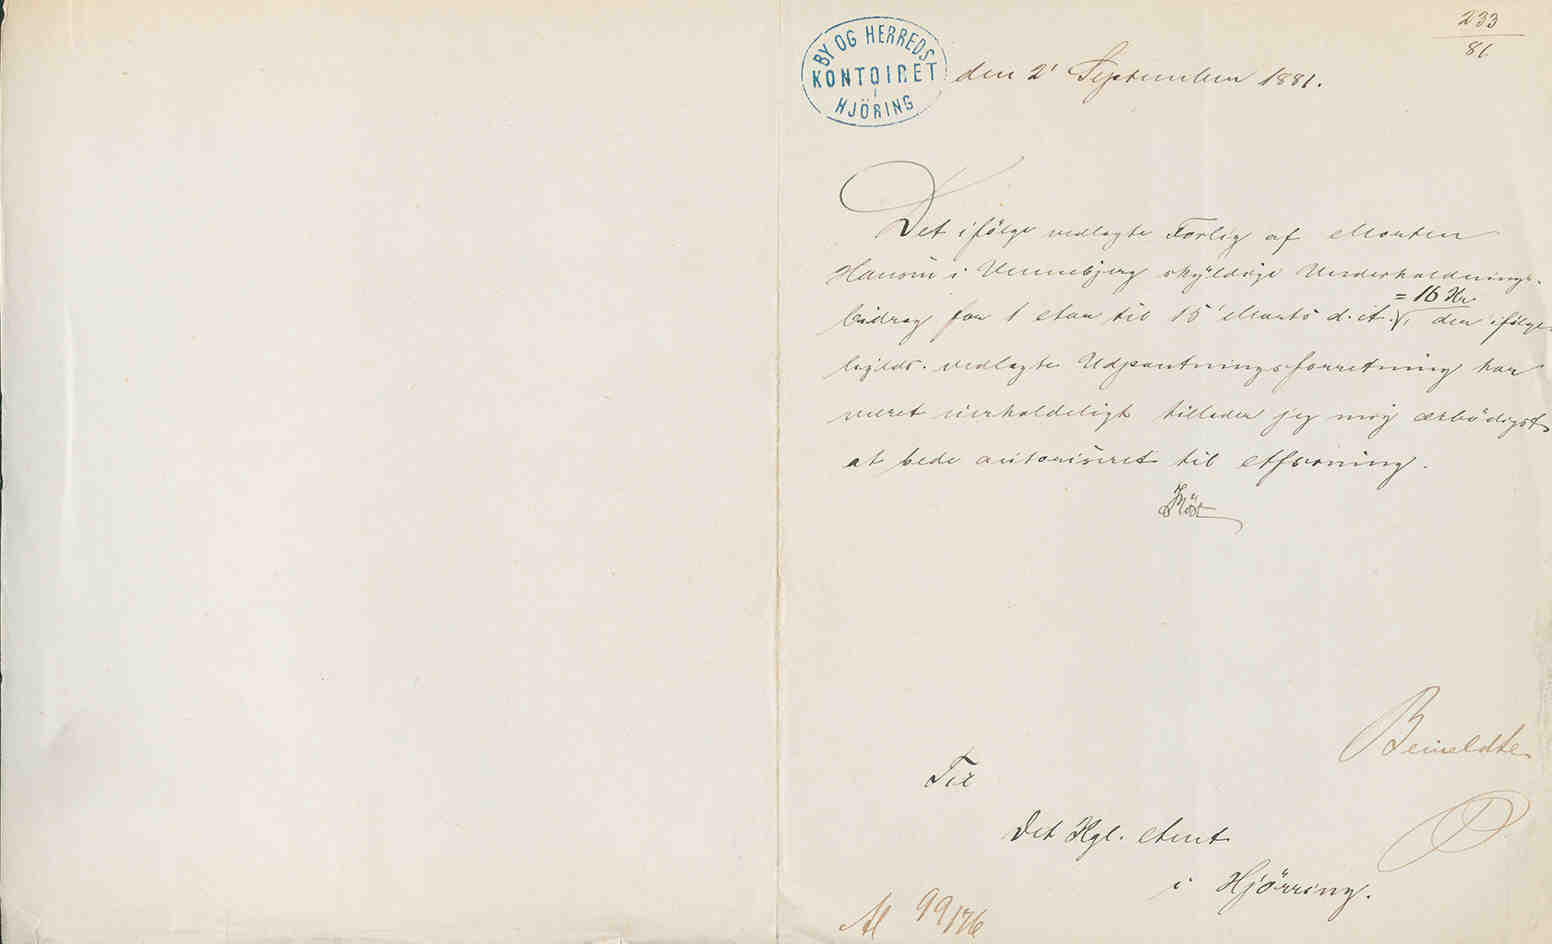 233
81
BY OG HERREDS
KONTOIRET
I
HJÖRING
den 2' September 1881.
Det ifölge vedlagte Forlig af Morten
Hansen i Vennebjerg skyldige Underholdnings-
= 16 Kr.
bidrag for 1 Aar til 15' Marts d. A. √, der ifölge
ligeds. vedlagte Udpantningsforretning har
været uerholdeligt tillader jeg mig ærbödigst
at bede autoriseret til Afsoning.
Til
Det Kgl. Amt
i Hjörring.
99/76